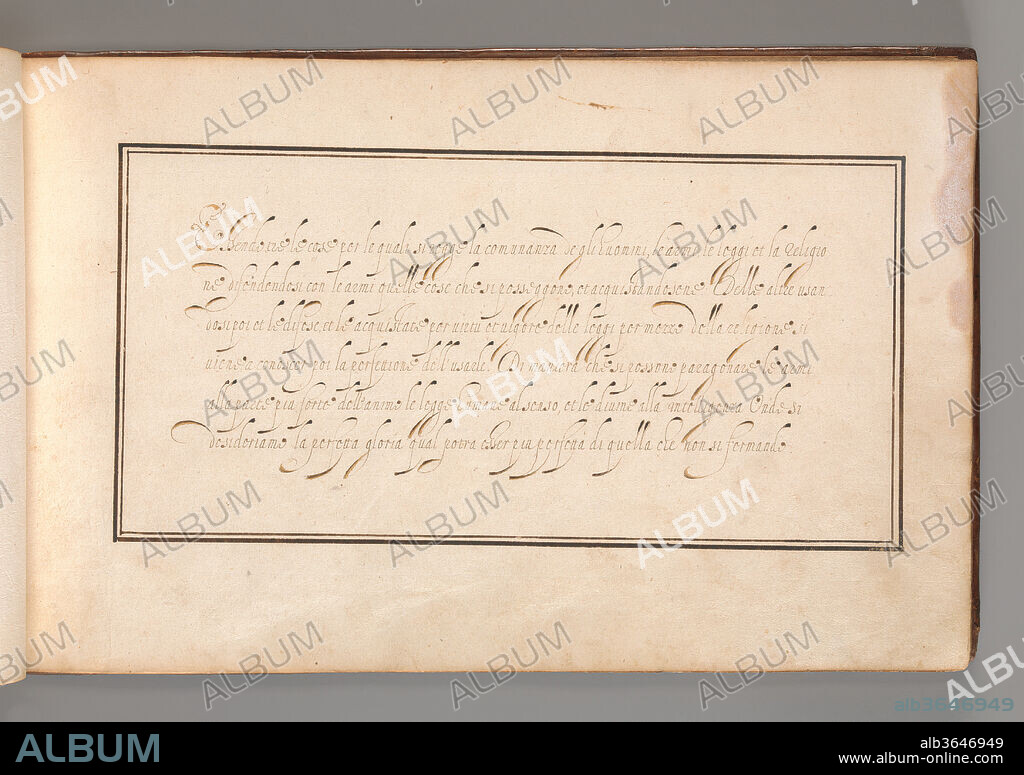 Essendo tre le cose per le quali si regge la comunanza de gli huomini, le armi, le leggi et la religio
ne difendendosi con le armi quelle cose che si posseggono, et acquistandosene Delle altre usan
dosi poi et le difese, et le acquistate per virtù et valore delle leggi per mezzo della religione si
viene a conoscer poi la perfettione dell'usarle. Di maniera che si possono paragonare le armi
alla parte più forte dell'animo le leggi humane al senso, et le divine alla intelligenza Onde si
desideriamo la perfetta gloria qual potrà esser più perfetta di quella che non si fermando
ALBUM
alb3646949
ALBUM
alb3646949
www.album-online.com